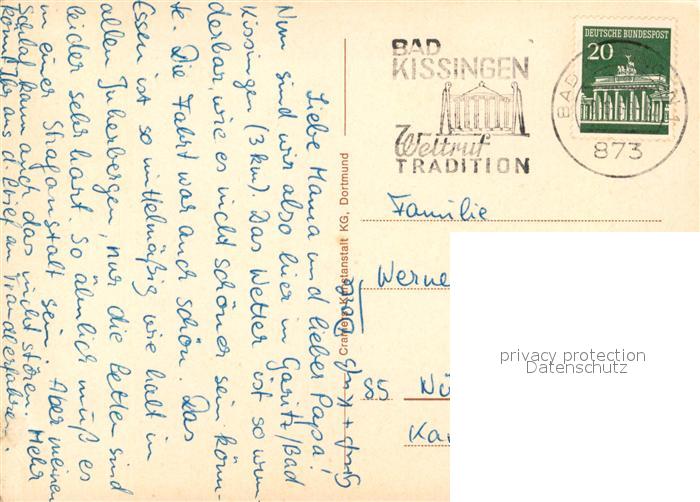 BAD
KISSINGEN
Weltruf
TRADITION
DEUTSCHE BUNDESPOST
20
BAD
873
Familie
Werne
85 Nü
Ka
privacy protection
Datenschutz
Cramers Kunstanstalt KG, Dortmund
Liebe Mama und lieber Papa!
Nun sind wir also hier in Garitz/Bad
Kissingen (3 km). Das Wetter ist so wun-
derbar, wie es nicht schöner sein könn-
te. Die Fahrt war auch schön. Das
Essen ist so mittelmäßig wie halt in
allen Juherbergen, nur die Betten sind
leider sehr hart. So ähnlich muß es
in einer Strafanstalt sein. Aber meinen
Schlaf kann auch das nicht stören. Mehr
könnt Ihr aus d. Brief an Traudl erfahren.
Gruß + Kuß